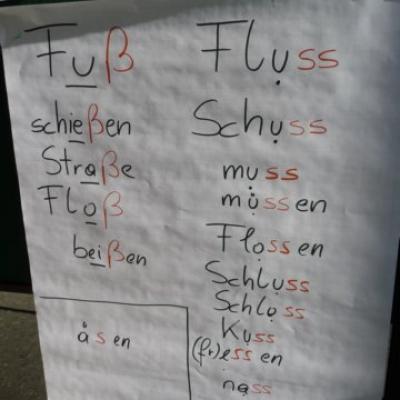 Fuß
schießen
Straße
Floß
beißen
åsen
Fluss
Schuss
muss
müssen
Flossen
Schluss
Schloss
Kuss
(fr)essen
nass